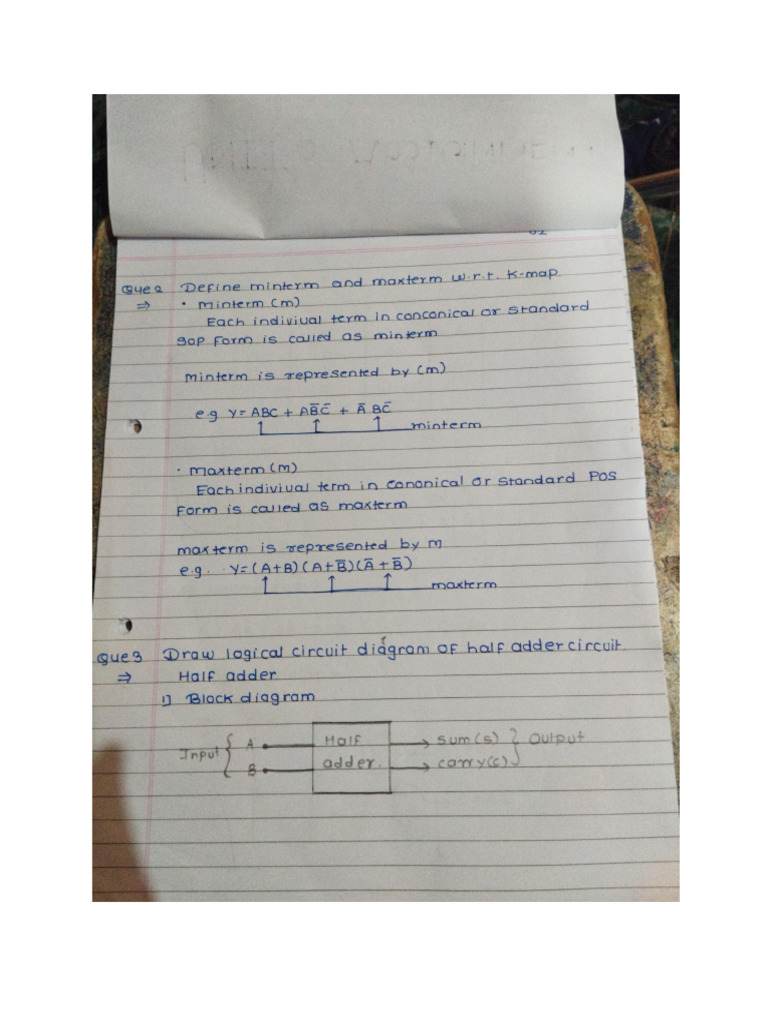 Que 2 Define minterm and maxterm w.r.t. K-map.
⇒ • minterm (m)
Each indiviual term in conconical or standard
SOP Form is called as minterm
minterm is represented by (m)
e.g Y = ABC + AB̅C̅ + A̅ BC̅
minterm
• maxterm (m)
Each indiviual term in canonical or standard POS
Form is called as maxterm
maxterm is represented by M
e.g. Y = (A+B) (A+B̅) (A̅+B̅)
maxterm
Que 3 Draw logical circuit diagram of half adder circuit.
⇒ Half adder
1) Block diagram
Input { A Half sum(s) } Output
B adder. carry(c)